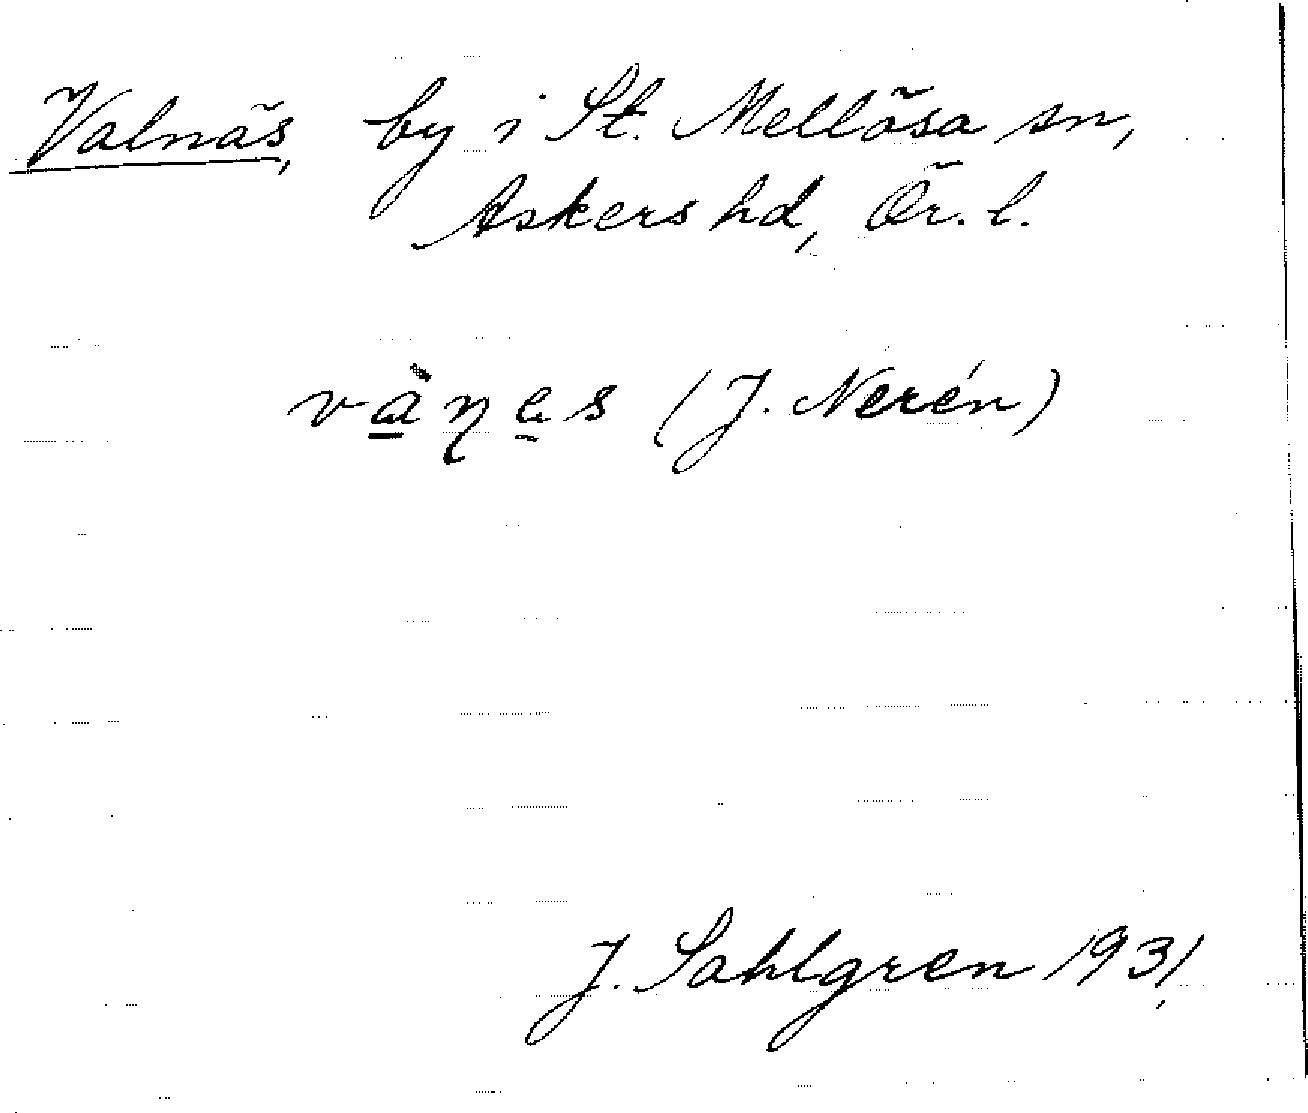 Valnäs, by i St. Mellösa sn,
Askers hd, Ör. l.
vàṇes (J. Nerén)
J. Sahlgren 1931